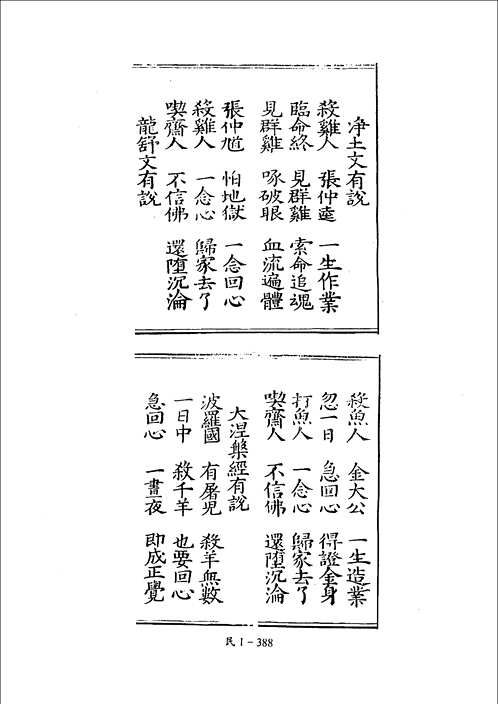 净土文有說
殺雞人 張仲逵 一生作業
臨命終 見群雞 索命追魂
見群雞 啄破眼 血流遍體
張仲馗 怕地獄 一念回心
殺雞人 一念心 歸家去了
喫齋人 不信佛 還墮沉淪
龍舒文有說
殺魚人 金大公 一生造業
忽一日 急回心 得證金身
打魚人 一念心 歸家去了
喫齋人 不信佛 還墮沉淪
大涅槃經有說
波羅國 有屠兒 殺羊無數
一日中 殺千羊 也要回心
急回心 一晝夜 即成正覺
民 I - 388